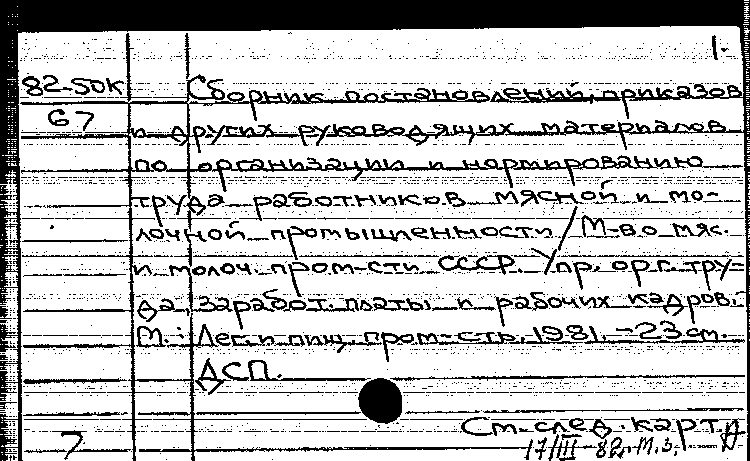 1.
82-50к Сборник постановлений, приказов
67 и других руководящих материалов
по организации и нормированию
труда работников мясной и мо-
лочной промышленности / М-во мяс.
и молоч. пром-сти СССР. Упр. орг. тру-
да, заработ. платы и рабочих кадров. -
М.: Лег. и пищ. пром-сть, 1981. - 23 см.
ДСП.
См. след. карт.
7 17/III-82. м.з.